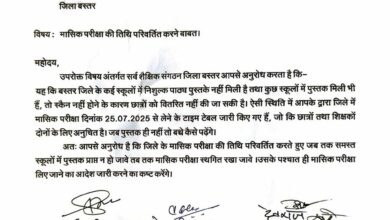 जिला बस्तर
विषय : मासिक परीक्षा की तिथि परिवर्तित करने बाबत।
महोदय,
उपरोक्त विषय अंतर्गत सर्व शैक्षिक संगठन जिला बस्तर आपसे अनुरोध करता है कि-
यह कि बस्तर जिले के कई स्कूलों में निशुल्क पाठ्य पुस्तके नहीं मिली है तथा कुछ स्कूलों में पुस्तक मिली भी
हैं, तो स्कैन नहीं होने के कारण छात्रों को वितरित नहीं की जा सकी है। ऐसी स्थिति में आपके द्वारा जिले में
मासिक परीक्षा दिनांक 25.07.2025 से लेने के टाइम टेबल जारी किए गए हैं, जो कि छात्रों तथा शिक्षकों
दोनों के लिए अनुचित है। जब पुस्तक ही नहीं तो बच्चे कैसे पढ़ेंगे।
अतः आपसे अनुरोध है कि जिले के मासिक परीक्षा की तिथि परिवर्तित करते हुए जब तक समस्त
स्कूलों में पुस्तक प्राप्त न हो जावे तब तक मासिक परीक्षा स्थगित रखा जावे ।उसके पश्चात ही मासिक परीक्षा
लिए जाने का आदेश जारी करने का कष्ट करेंगे।